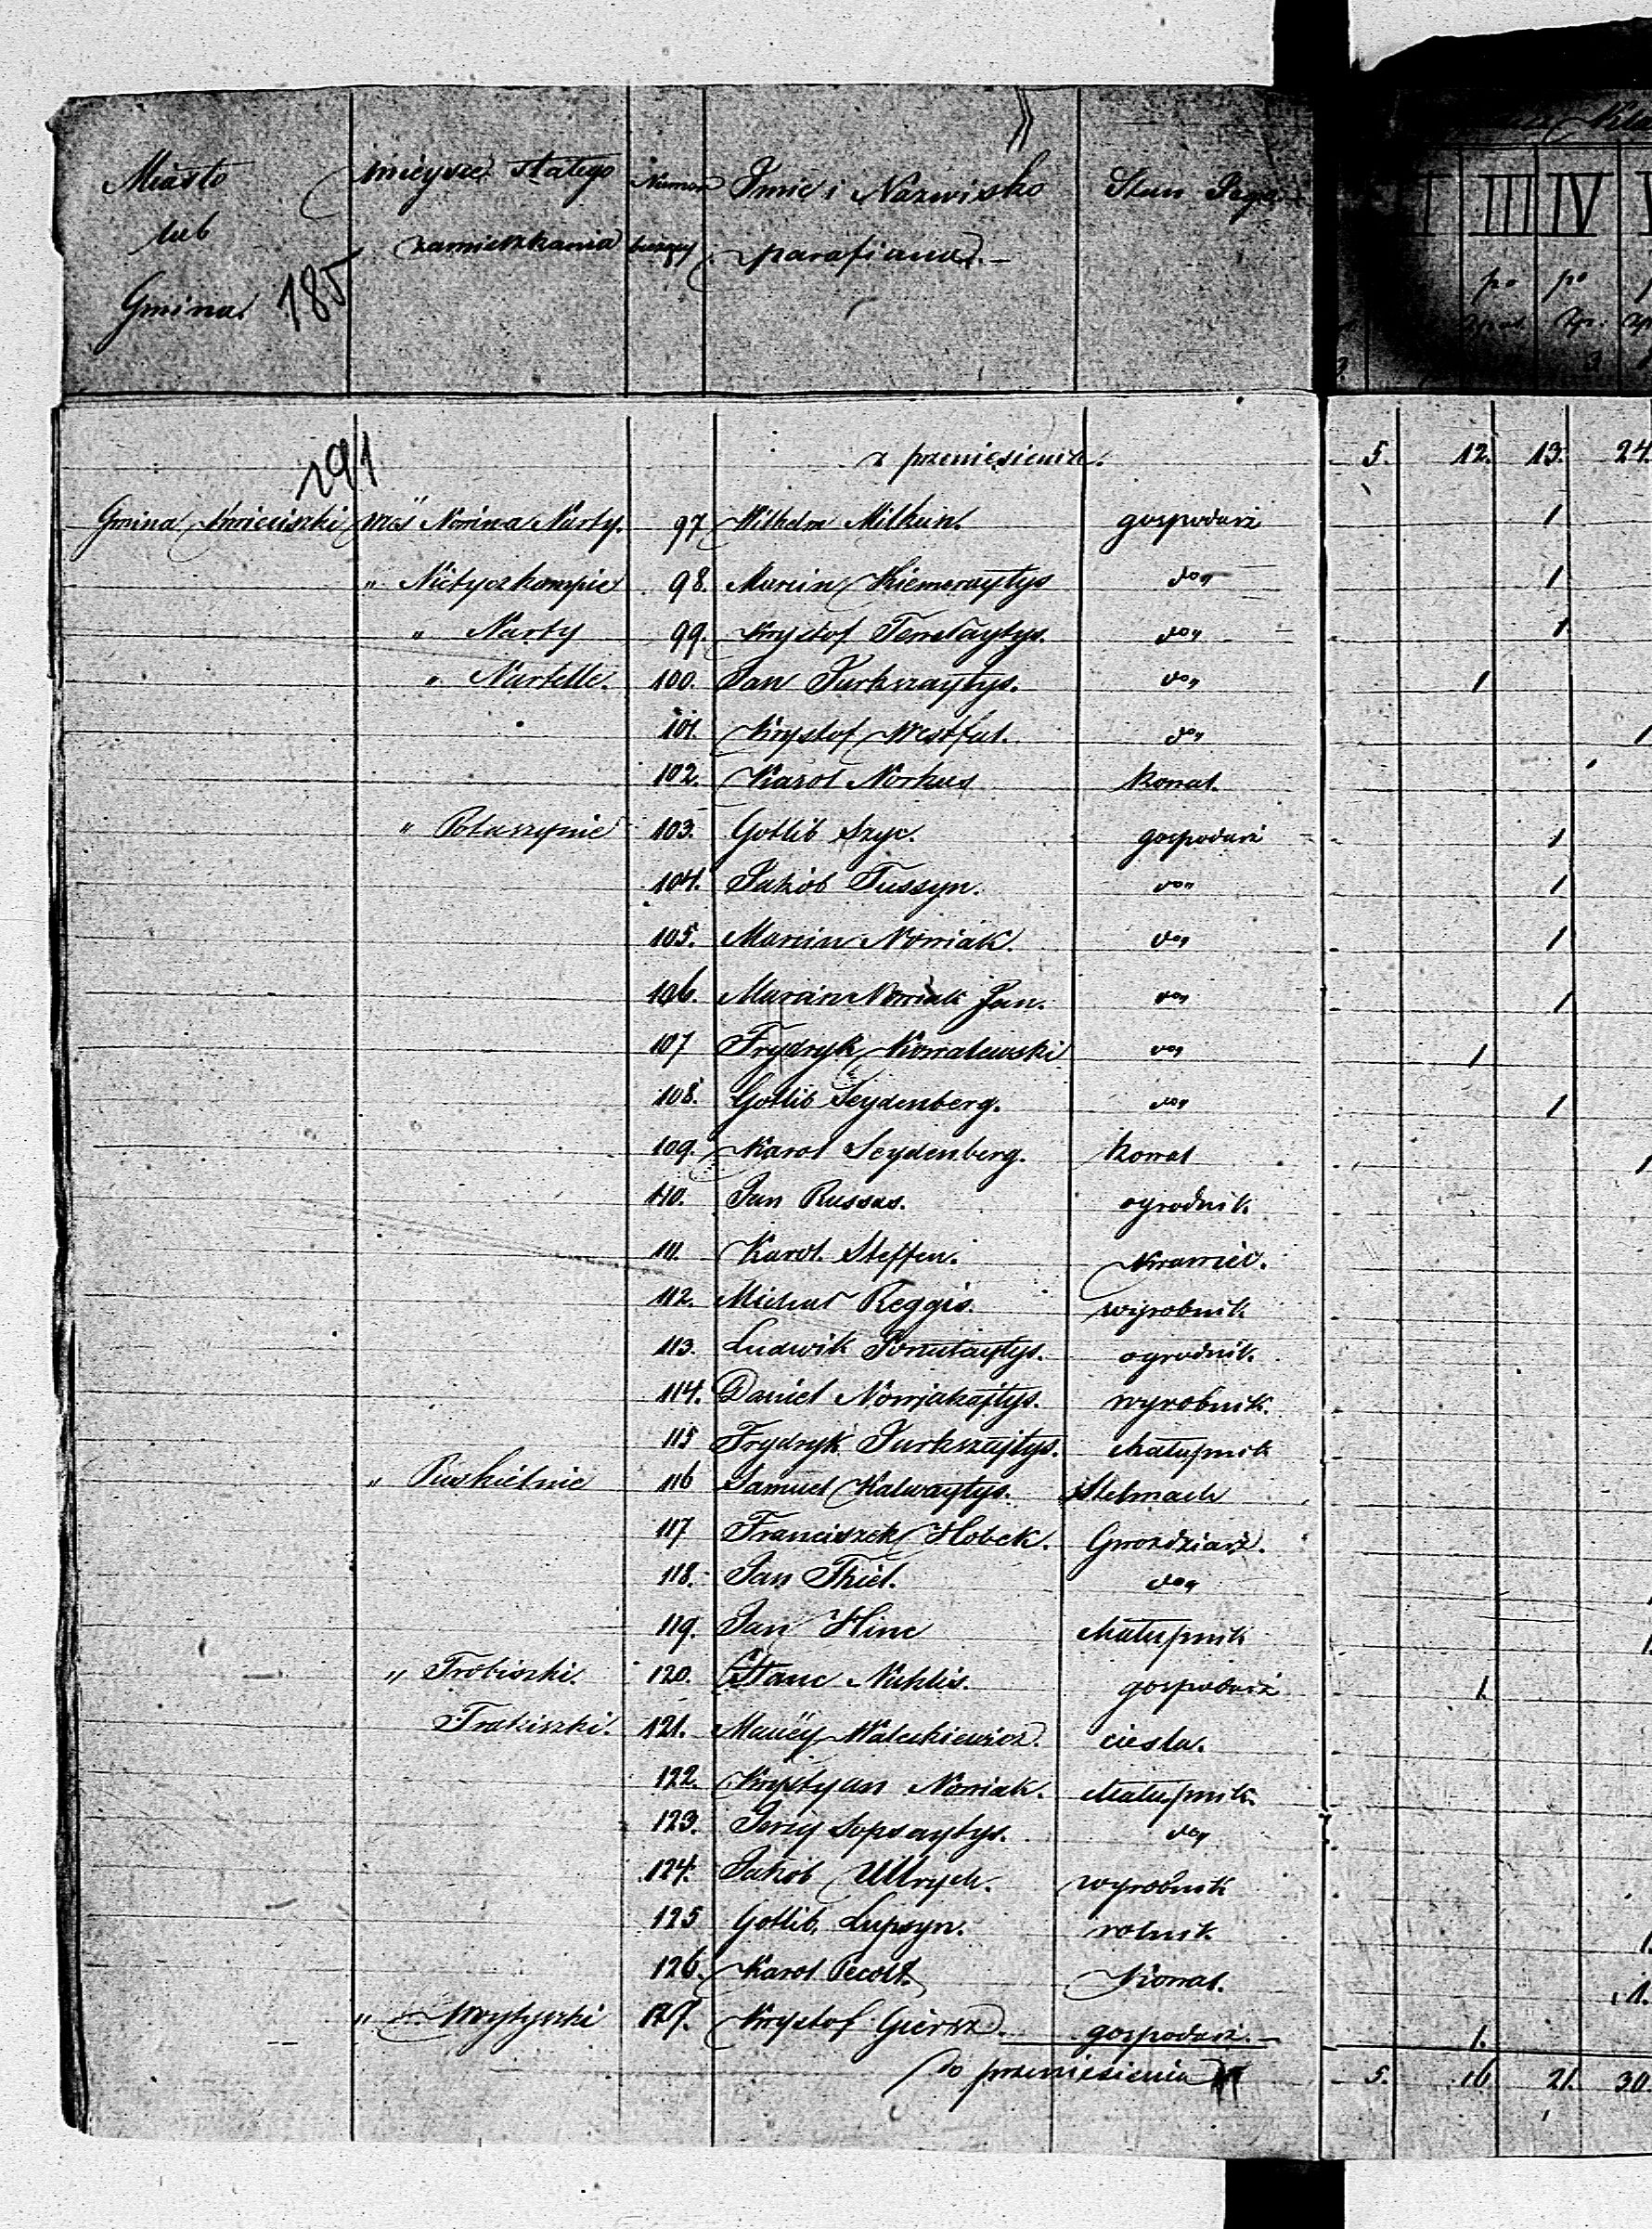 Miasto lub Gmina 185 mieysce stałego zamieszkania Numer bieżący Imie i Nazwisko parafiana. Stan Jego
III IV
po po
Złp. 3
191
z przeniesienia. 5. 12. 13. 24
Gmina Kwieciszki wieś Nowina Narty. 97 Wilhelm Milkun. gospodarz 1
" Nietyczkampie 98. Marcin Kiemeraytys do" 1
" Narty 99. Krystof Terrelaytys. do" 1
" Nartelle. 100. Jan Jurkszaytys. do" 1
101. Krystof Westfal. do" 1
102. Karol Norkus Kowal.
" Potaszynie 103. Gotlib Szyc. gospodarz 1
104. Jakób Tussyn. do" 1
105. Marcin Nowiak. do" 1
106. Marcin Nowiak Jan. do" 1
107 Frydryk Kowalewski do" 1
108. Gotlib Seydenberg. do" 1
109. Karol Seydenberg. Kowal 1
110. Jan Russas. ogrodnik
111. Karol Steffen. Krawiec.
112. Michał Reggis. wyrobnik
113. Ludwik ogrodnik.
114. Daniel Nowjakajtys. wyrobnik.
115 Frydryk Jurkszajtys. Chałupnik
" Puskielnie 116 Samuel Kalwaytys. Stelmach
117 Franciszek Hobek. Gwoździarz.
118. Jan Thiel. do"
119. Jan Hinc Chałupnik 1
" Trobiszki. 120. Niklis. gospodarz 1.
Trakiszki. 121. Maciéy Waleckiewicz. cieśla.
122. Krystyan Nowiak. Chałupnik.
123. Jerzy Sopsaytys. do"
124. Jakób Ullrych. wyrobnik
125 Gotlib Lupsyn. rolnik. 1
126. Karol Pecolt. Kowal. 1.
" Woytyszki 127. Krystof Giersz. gospodarz. 1.
Do przeniesienia 5. 16 21. 30